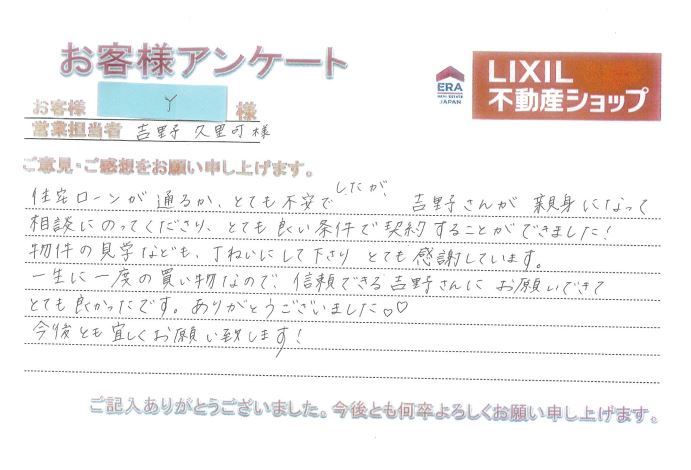 お客様アンケート
ERA
REAL ESTATE
JAPAN
LIXIL
不動産ショップ
お客様 Y 様
営業担当者 吉野 久里可様
ご意見・ご感想をお願い申し上げます。
住宅ローンが通るか、とても不安でしたが、吉野さんが親身になって
相談にのってくださり、とても良い条件で契約することができました!
物件の見学なども、丁ねいにして下さり とても感謝しています。
一生に一度の買い物なので、信頼できる吉野さんに お願いできて
とても良かったです。ありがとうございました♡♡
今後とも宜しくお願い致します!
ご記入ありがとうございました。今後とも何卒よろしくお願い申し上げます。